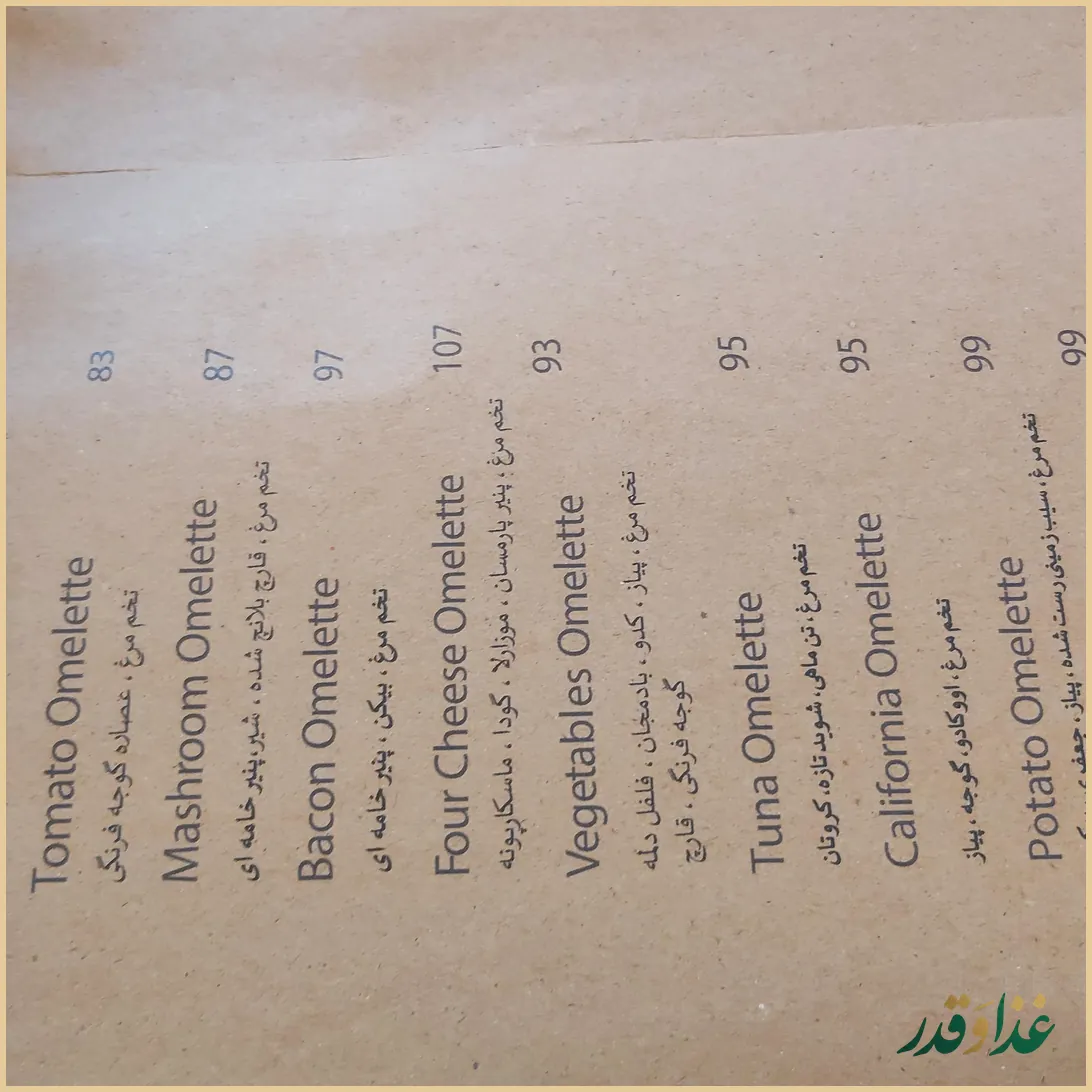 Tomato Omelette 83
تخم مرغ ، عصاره گوجه فرنگی
Mashroom Omelette 87
تخم مرغ ، قارچ بلانچ شده ، شیر، پنیر خامه ای
Bacon Omelette 97
تخم مرغ ، بیکن ، پنیر خامه ای
Four Cheese Omelette 107
تخم مرغ ، پنیر پارمسان ، موزارلا ، گودا ، ماسکارپونه
Vegetables Omelette 93
تخم مرغ ، پیاز ، کدو ، بادمجان ، فلفل دلمه
گوجه فرنگی ، قارچ
Tuna Omelette 95
تخم مرغ ، تن ماهی، شوید تازه، کروتان
California Omelette 95
تخم مرغ ، اووکادو، گوجه ، پیاز
Potato Omelette 99
تخم مرغ ، سیب زمینی رست شده، پیاز ، جعفری
99
غذا و قدر